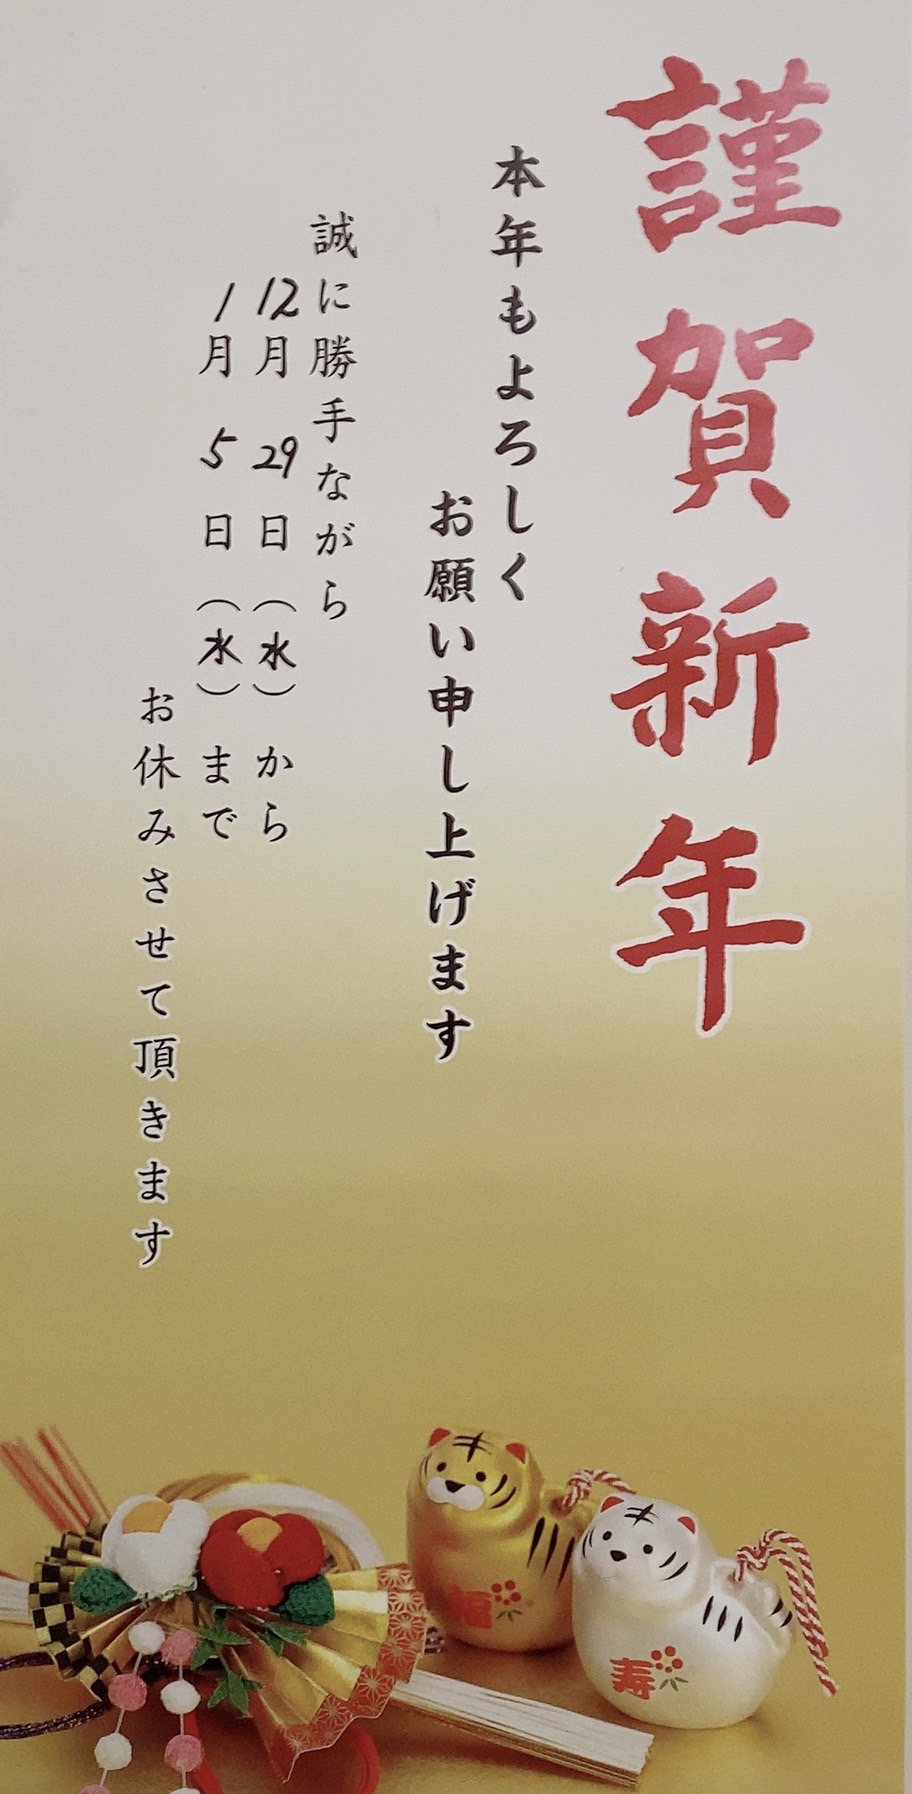 謹賀新年
本年もよろしく
お願い申し上げます
誠に勝手ながら
12月29日（水）から
1月5日（水）まで
お休みさせて頂きます
福
寿